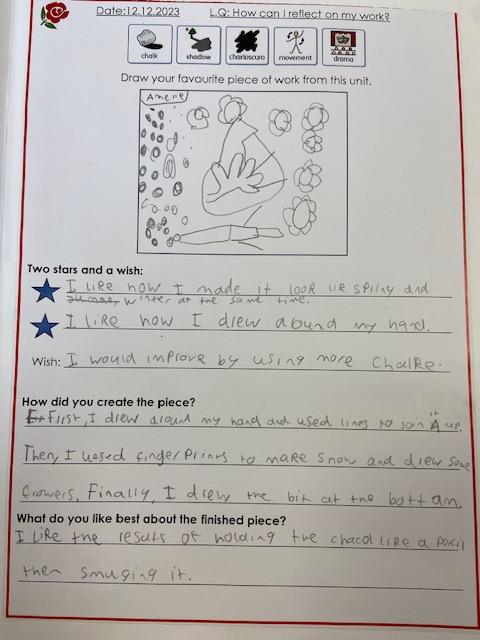 Date:12.12.2023 L.Q: How can I reflect on my work?
chalk shadow chairoscuro movement drama
Draw your favourite piece of work from this unit.
Amelie
Two stars and a wish:
I like how I made it look lie spring and
winter at the same time.
I like how I drew around my hand.
Wish: I would improve by using more Chalke.
How did you create the piece?
First, I drew around my hand and used lines to join it up.
Then, I uesed finger prints to make snow and drew some
frowers. Finally, I drew the bit at the bottam.
What do you like best about the finished piece?
I like the results of holding the chacol like a
then smuging it.